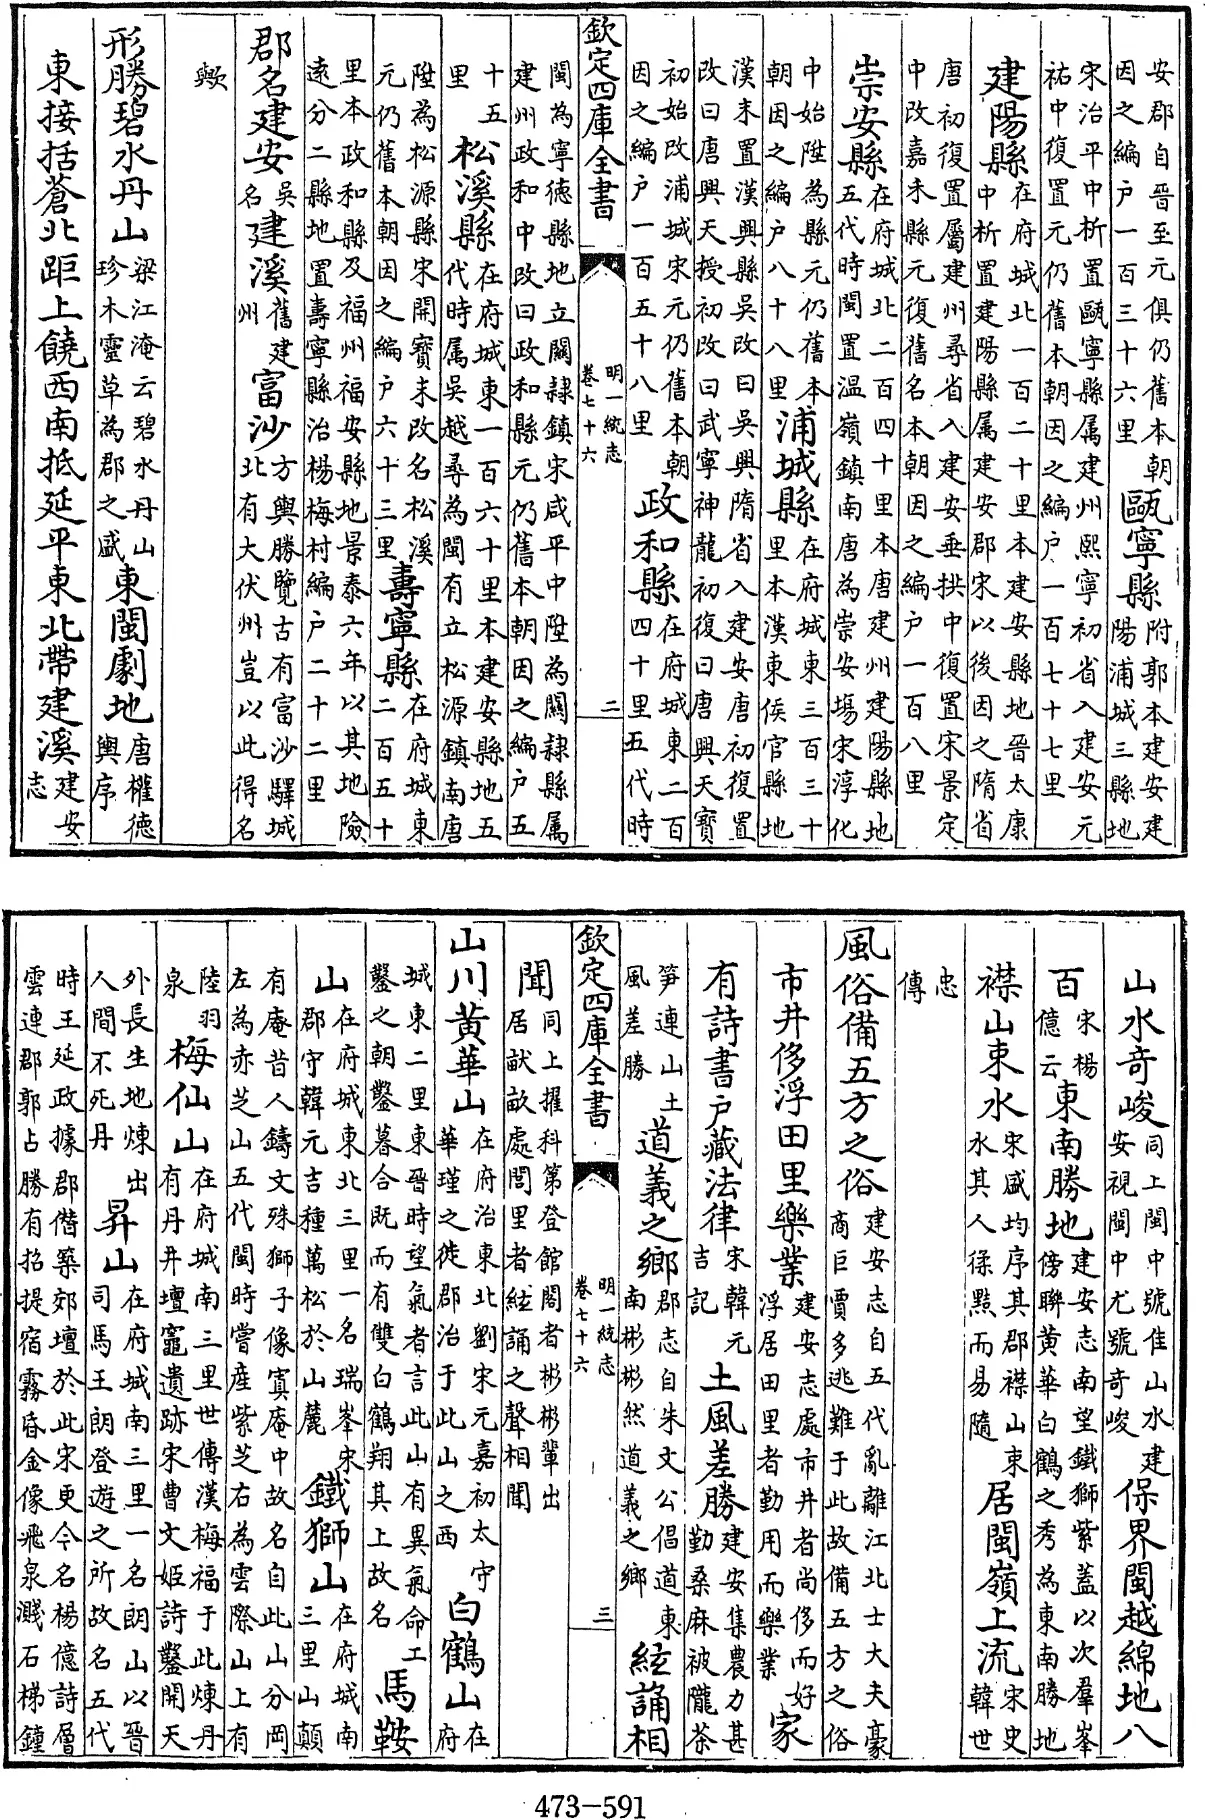 安郡自晉至元俱仍舊本朝因之編户一百三十六里甌寧縣附郭本建安建陽浦城三縣地
宋治平中析置甌寧縣属建州熙寧初省入建安元祐中復置元仍舊本朝因之編户一百七十七里
建陽縣在府城北一百二十里本建安縣地晉太康中析置建陽縣属建安郡宋以後因之隋省
唐初復置屬建州尋省入建安垂拱中復置宋景定中改嘉禾縣元復舊名本朝因之編户一百八里
崇安縣在府城北二百四十里本唐建州建陽縣地五代時閩置温嶺鎮南唐為崇安塲宋淳化
中始陞為縣元仍舊本朝因之編户八十八里浦城縣在府城東三百三十里本漢東侯官縣地
漢末置漢興縣吳改曰吳興隋省入建安唐初復置改曰唐興天授初改曰武寧神龍初復曰唐興天寳
初始改浦城宋元仍舊本朝因之編户一百五十八里政和縣在府城東二百四十里五代時
欽定四庫全書
明一統志
卷七十六
二
閩為寧德縣地立關隷鎮宋咸平中陞為關隷縣属建州政和中改曰政和縣元仍舊本朝因之編户五
十五里松溪縣在府城東一百六十里本建安縣地五代時属吳越尋為閩有立松源鎮南唐
陞為松源縣宋開寳末改名松溪元仍舊本朝因之編户六十三里壽寧縣在府城東二百五十
里本政和縣及福州福安縣地景泰六年以其地險遠分二縣地置壽寧縣治楊梅村編户二十二里
郡名建安吳名建溪舊建州富沙方輿勝覽古有富沙驛城北有大伏州豈以此得名
歟
形勝碧水丹山梁江淹云碧水丹山珍木靈草為郡之盛東閩劇地唐權德輿序
東接括蒼北距上饒西南抵延平東北帶建溪建安志
山水奇峻同上閩中號佳山水建安視閩中尤號奇峻保界閩越綿地八
百宋楊億云東南勝地建安志南望鐵獅紫蓋以次羣峯傍聯黄華白鶴之秀為東南勝地
襟山束水宋盛均序其郡襟山束水其人祿黠而易隨居閩嶺上流宋史韓世
忠傳
風俗備五方之俗建安志自五代亂離江北士大夫豪商巨賈多逃難于此故備五方之俗
市井侈浮田里樂業建安志處市井者尚侈而好浮居田里者勤用而樂業家
有詩書户藏法律宋韓元吉記土風差勝建安集農力甚勤桑麻被隴茶
笋連山土風差勝道義之鄉郡志自朱文公倡道東南彬彬然道義之鄉絃誦相
聞同上擢科第登館閣者彬彬輩出居畎畝處閭里者絃誦之聲相聞
欽定四庫全書
明一統志
卷七十六
三
山川黄華山在府治東北劉宋元嘉初太守華瑾之徙郡治于此山之西白鶴山在府
城東二里東晉時望氣者言此山有異氣命工鑿之朝鑿暮合既而有雙白鶴翔其上故名馬鞍
山在府城東北三里一名瑞峯宋郡守韓元吉種萬松於山麓鐵獅山在府城南三里山巔
有庵昔人鑄文殊獅子像寘庵中故名自此山分岡左為赤芝山五代閩時嘗産紫芝右為雲際山上有
陸羽泉梅仙山在府城南三里世傳漢梅福于此煉丹有丹井壇竈遺跡宋曹文姬詩鑿開天
外長生地煉出人間不死丹昇山在府城南三里一名朗山以晉司馬王朗登遊之所故名五代
時王延政據郡僭築郊壇於此宋更今名楊億詩層雲連郡郭占勝有招提宿霧昏金像飛泉濺石梯鐘
473-591